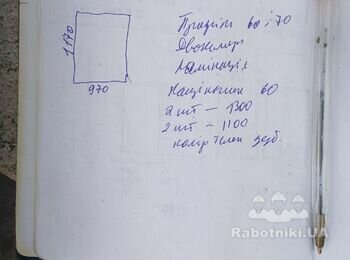 1170
970
Профіль 60 і 70
Двокамер
Ламінація
Нащільники 60
2 шт - 1300
2 шт - 1100
колір темн дуб.
Rabotniki.UA